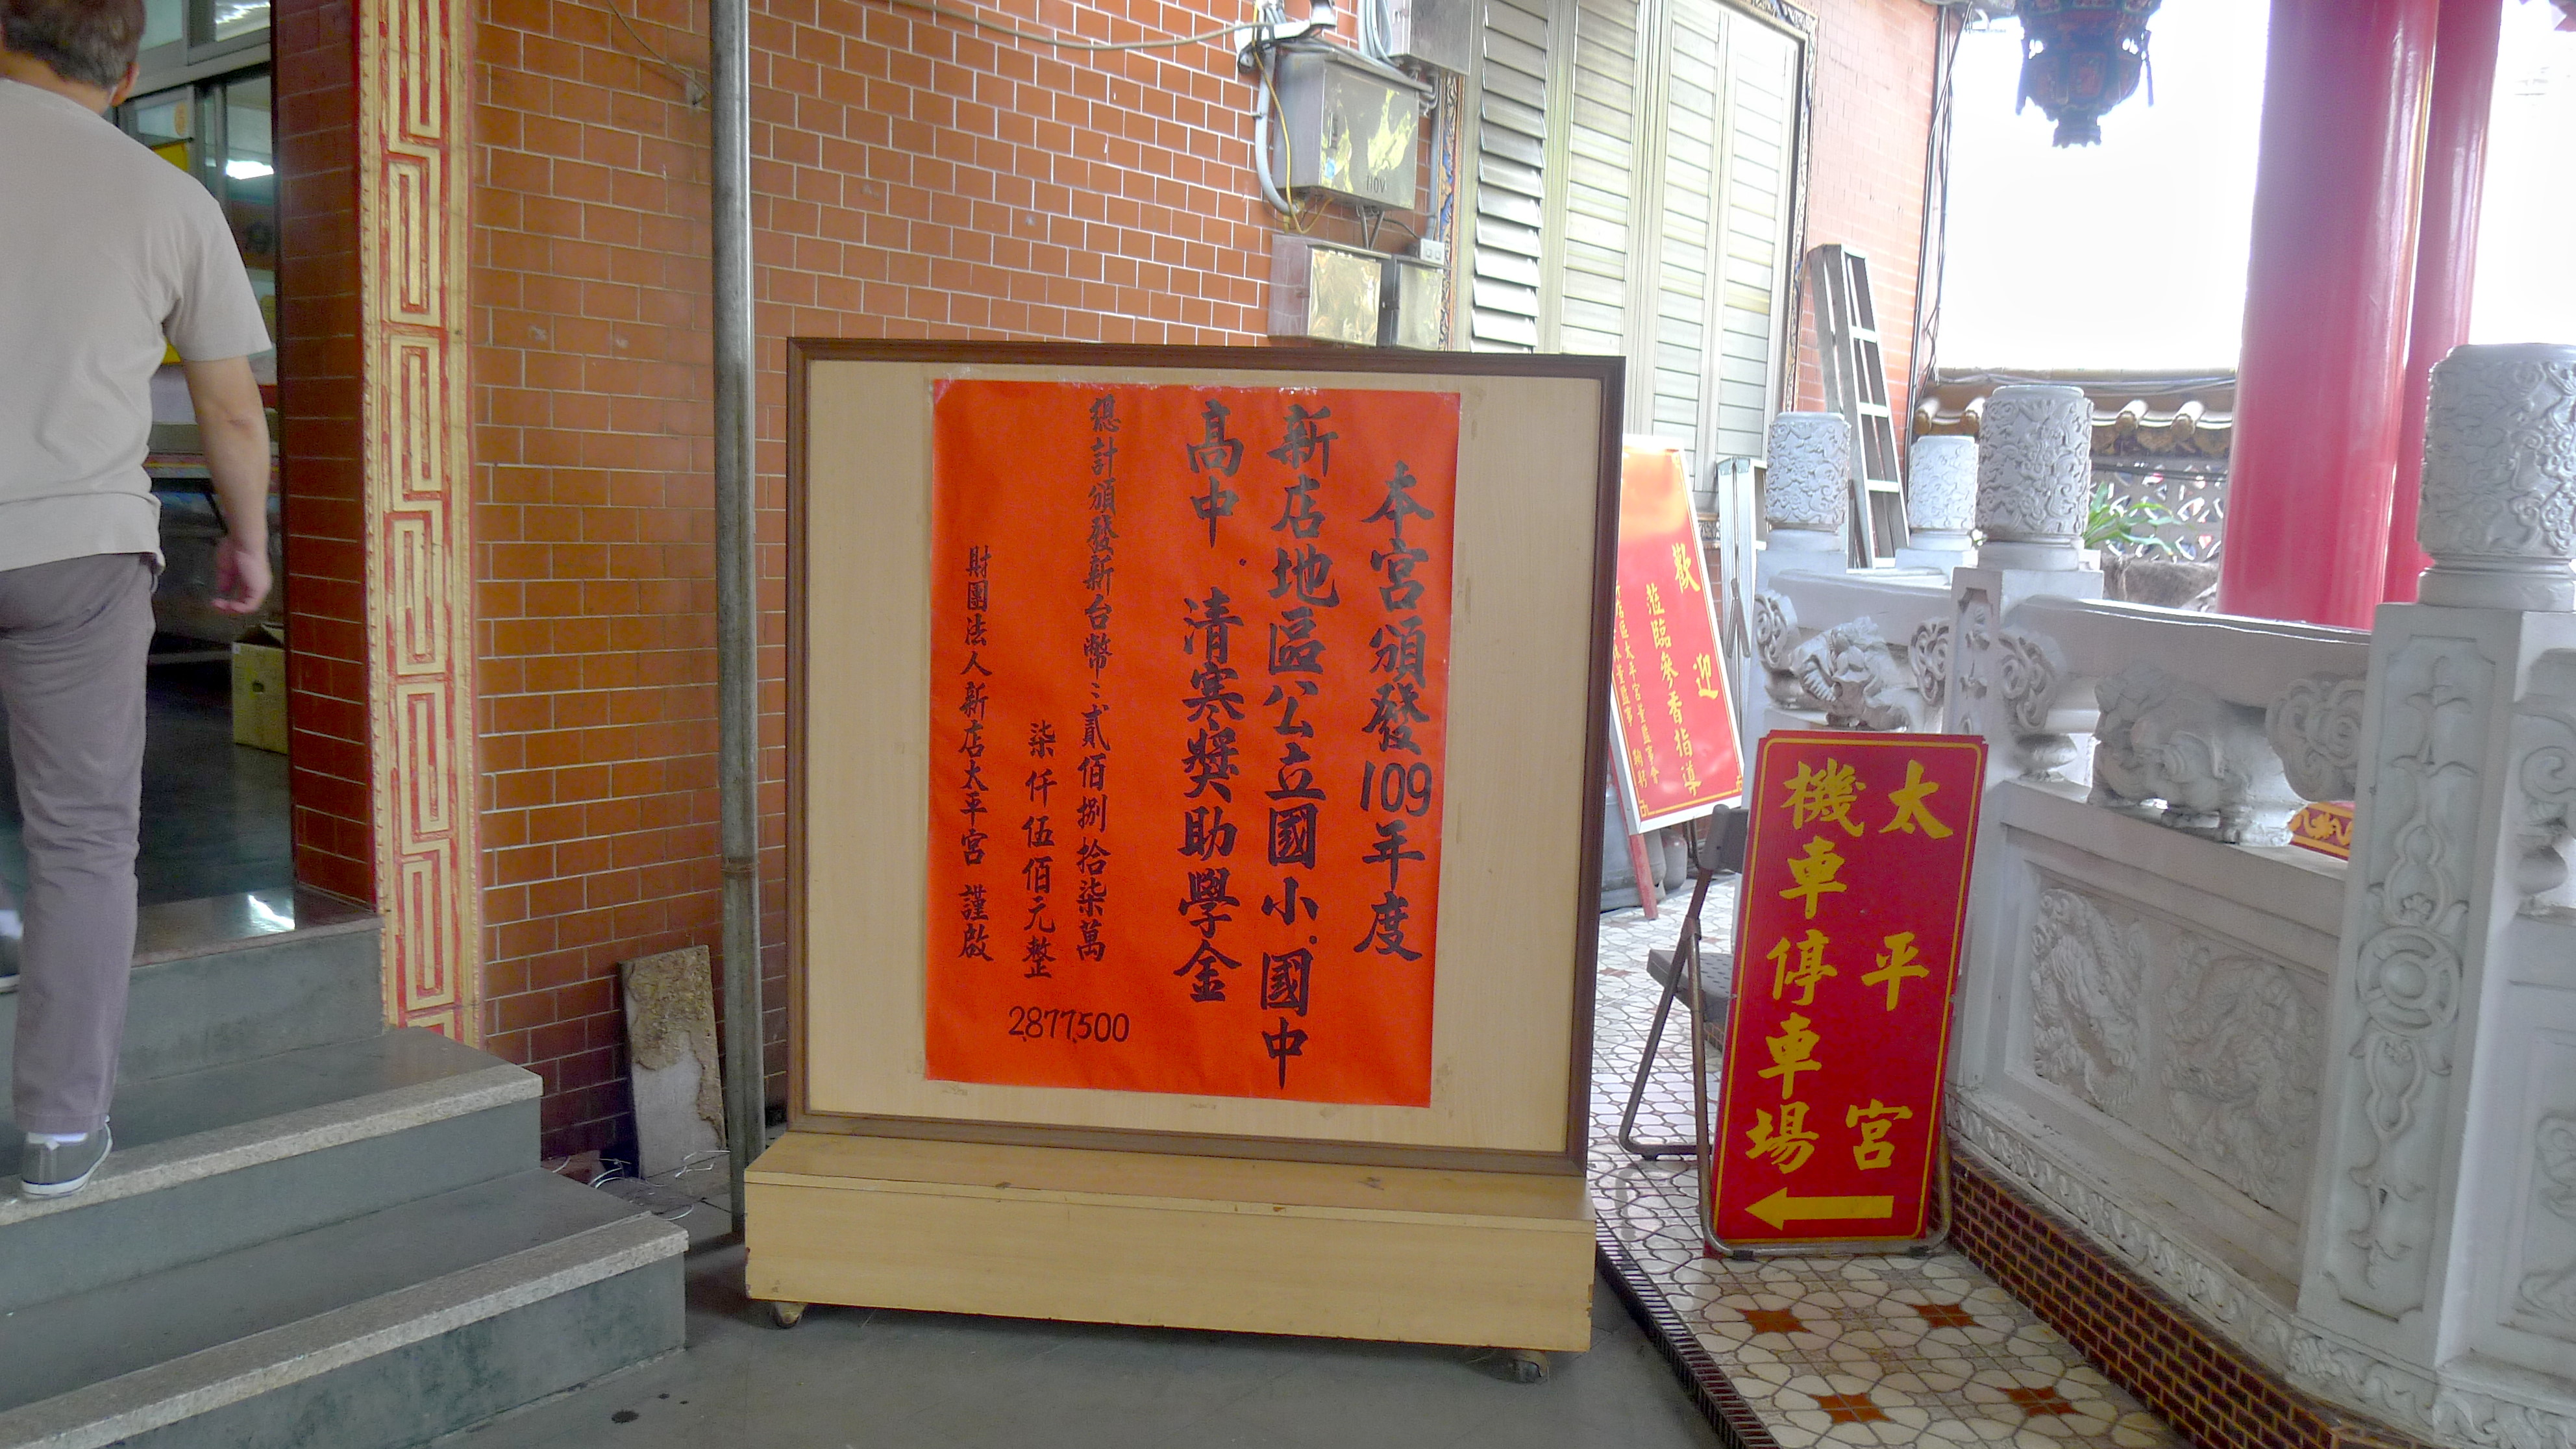 本宮頒發109年度
新店地區公立國小、國中
高中 清寒獎助學金
總計頒發新台幣:貳佰捌拾柒萬
柒仟伍佰元整
2877500
財團法人新店太平宮 謹啟
歡迎
蒞臨參香指導
太平宮
機車停車場